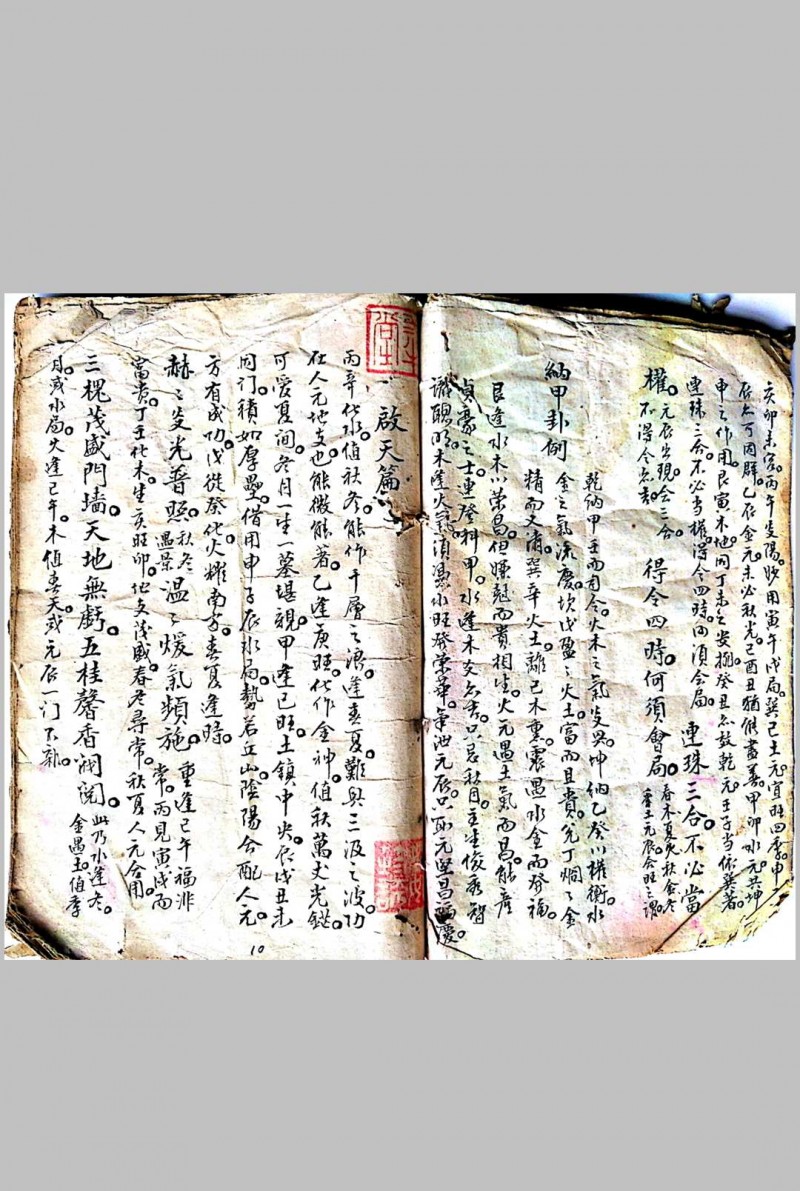 亥卯未宮。丙午炎陽。妙用寅午戌局。巽己土元。宜旺四季。申
辰亦可同群。乙在金元。未必秋光。己酉丑猶能盡善。甲卯水元。共坤
申之作用。艮寅木地。同丁未之安排。癸丑忝鼓乾元。壬子当依巽著。
連珠三合。不必当權。得令四時。何須会局。
連珠三合。不必當
權。元辰出現会三合。
不得令亦吉
得令四時。何須會局。春木夏火秋金冬
季土元辰会旺之謂
納甲卦例
乾納甲壬而司令。火木之氣炎炎。坤納乙癸以權衡。水
金之氣流慶。坎戊盈之火土。富而且貴。兌丁烱之金
精而文甫。巽辛火土。離己木重。震遇水金而發福。
艮逢水木以榮昌。但嫌尅而貴相生。火元遇土氣而昌。能產
貞豪之士。連登科甲。水逢木炎亦吉。只忌秋月。主生俊秀智
謝聰明。木逢火氣。須濕水旺發榮華。
元辰。只取元堅昌福慶。
啟天篇
丙辛化水。值秋冬。能作千層之浪。逢春夏。難與三汲之波。功
在人元地支也。能微能著。乙逢庚旺。化作金神。值秋萬丈光鋩。
可愛夏间。冬月一生一墓堪親。甲逢己旺。土鎮中央。辰戌丑未
同门。積如厚壘。借用申子辰水局。勢若丘山。陰陽合配人元。
方有成功。戊從癸化。火耀南方。春夏逢時。
赫之炎光普照。秋冬
遇景
溫之煖氣頻施。重逢己午。福非
常。丙見寅戌而
富贵。丁壬化木。生亥旺卯。地支茂盛。春冬尋常。秋夏人元合用。
三槐茂盛門墻。天地無虧。五桂馨香潤說。此乃水逢冬。
金遇土值季
月。或水局。火逢己午。木值春天。或元辰一门不雜。
10